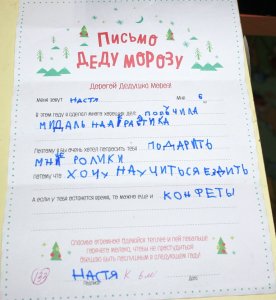 ПИСЬМО
ДЕДУ МОРОЗУ
Дорогой Дедушка Мороз!
Меня зовут НАСТЯ Мне 6
В этом году я сделал много хороших дел: ПОЛУЧИЛА
МИДАЛЬ НАБРАСТИКА
Поэтому я бы очень хотел попросить тебя ПОДАРИТЬ
МНЕ РОЛИКИ
потому что ХОЧУ НАУЧИТЬСЯ ЕЗДИТЬ
А если у тебя останется время, то можно еще и КОНФЕТЫ
Спасибо огромное! Одевайся теплее и пей побольше
горячего молока, чтобы не простудиться.
Обещаю быть послушным в следующем году!
137 НАСТЯ К
Подпись Дата